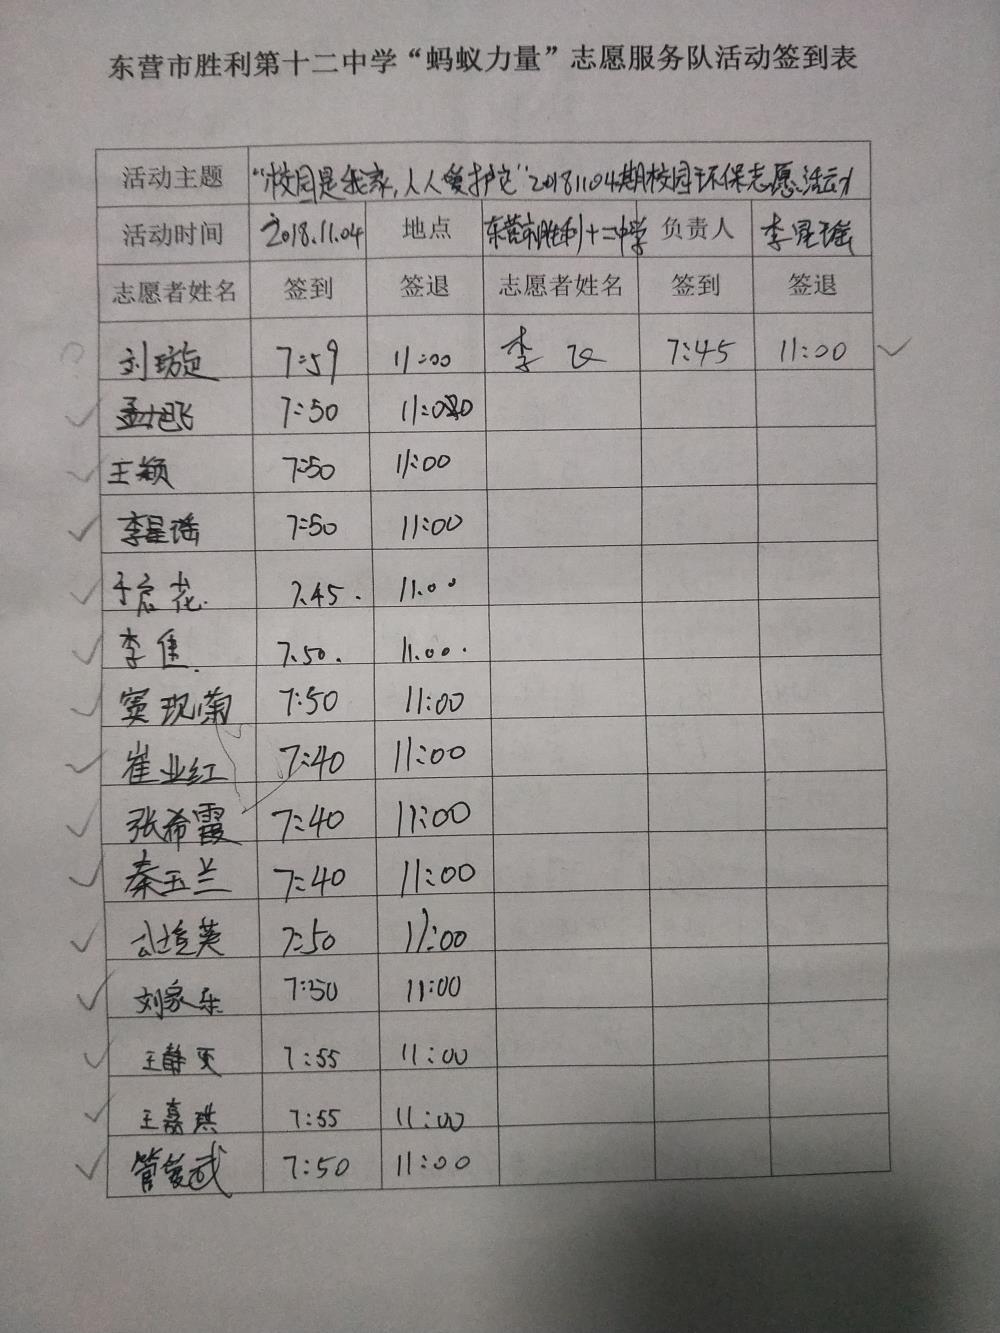 东营市胜利第十二中学“蚂蚁力量”志愿服务队活动签到表
活动主题 “校园是我家,人人爱护它”20181104期校园环保志愿活动
活动时间 2018.11.04 地点 东营市胜利十二中学 负责人 李星瑶
志愿者姓名 签到 签退 志愿者姓名 签到 签退
刘璇 7:59 11:00 李 7:45 11:00
孟旭飞 7:50 11:00
王颖 7:50 11:00
李星瑶 7:50 11:00
于启花. 7.45. 11.00
李佳. 7.50. 11.00.
窦现菊 7:50 11:00
崔业红 7:40 11:00
张希霞 7:40 11:00
秦玉兰 7:40 11:00
英 7:50 11:00
刘家乐 7:50 11:00
王静 7:55 11:00
王嘉琪 7:55 11:00
管 武 7:50 11:00